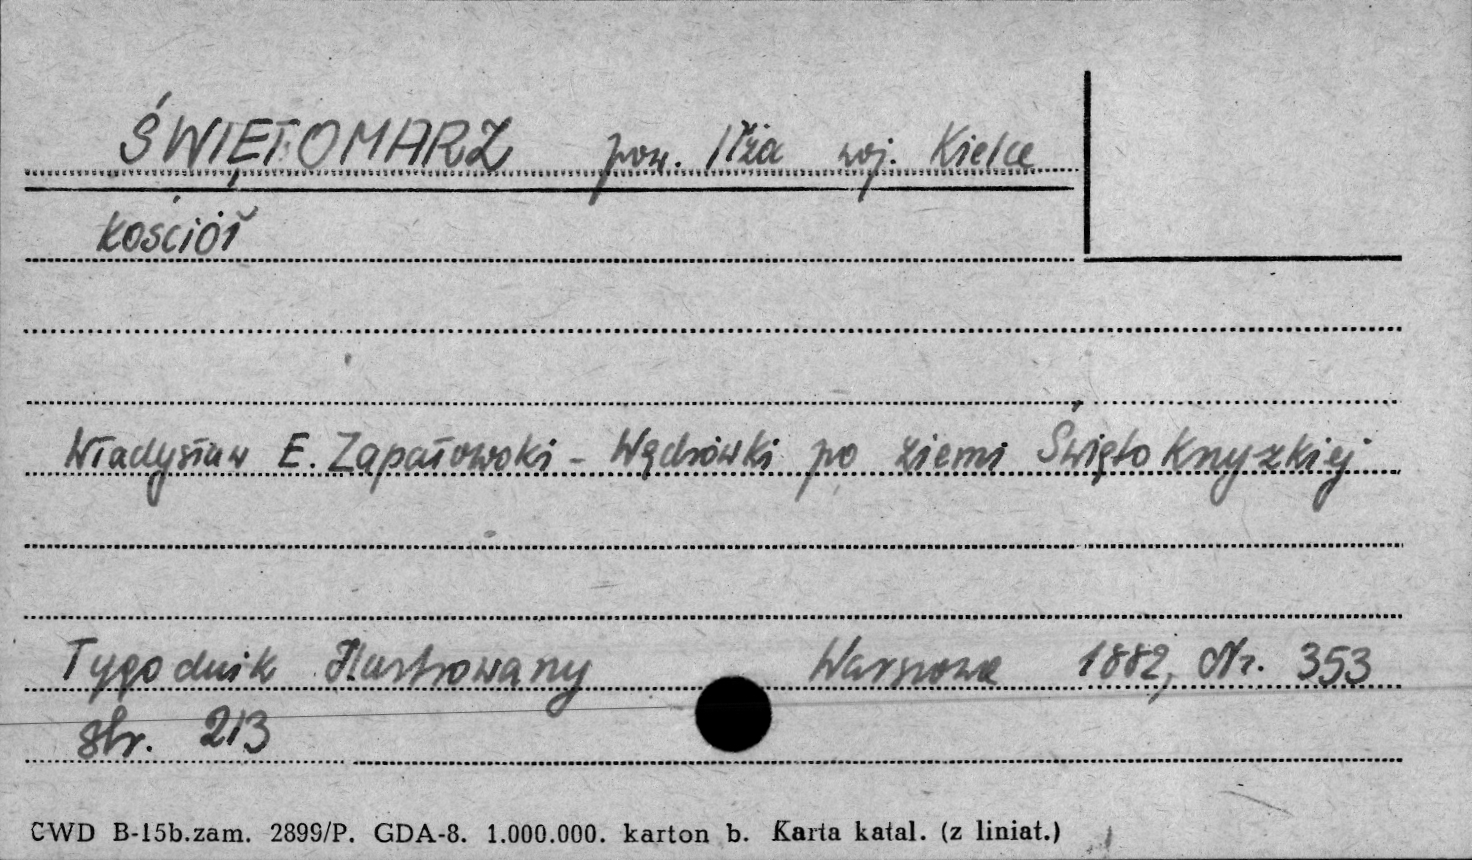 ŚWIĘTOMARZ pow. Iłża woj. Kielce
Kościół
Władysław E. Zapałowski - Wędrówki po ziemi Święto Knyzkiej
Tygodnik Ilustrowany Warszawa 1882, Nr. 353
str. 213
CWD B-15b.zam. 2899/P. GDA-8. 1.000.000. karton b. Karta katal. (z liniat.)